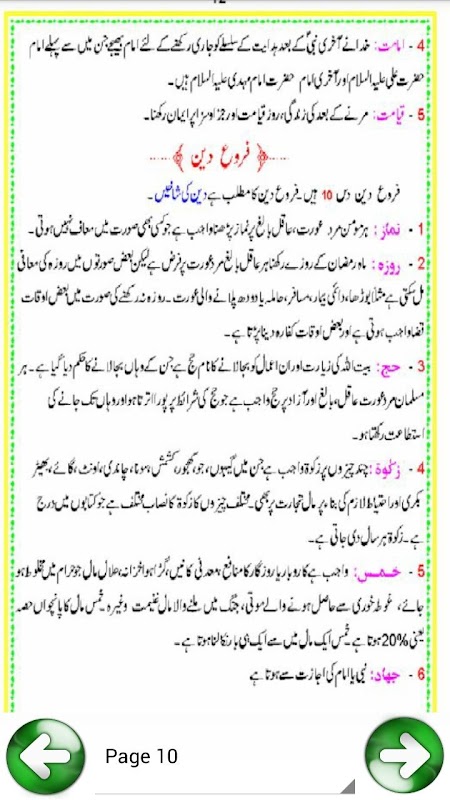 12
4 - امامت: خدا نے آخری نبیؐ کے بعد ہدایت کے سلسلے کو جاری رکھنے کے لئے امام بھیجے جن میں سے پہلے امام
حضرت علی علیہ السلام اور آخری امام حضرت امام مہدی علیہ السلام ہیں۔
5 - قیامت: مرنے کے بعد کی زندگی، روز قیامت اور جزا و سزا پر ایمان رکھنا۔
فروع دین
فروع دین دس 10 ہیں۔ فروع دین کا مطلب ہے دین کی شاخیں۔
1 - نماز: ہر مومن مرد عورت، عاقل بالغ پر نماز پڑھنا واجب ہے جو کسی بھی صورت میں معاف نہیں ہوتی۔
2 - روزہ: ماہ رمضان کے روزے رکھنا ہر عاقل بالغ مرد عورت پر فرض ہے لیکن بعض صورتوں میں روزہ کی معافی
مل سکتی ہے مثلاً بوڑھا، دائمی بیمار، مسافر، حاملہ یا دودھ پلانے والی عورت۔ روزہ نہ رکھنے کی صورت میں بعض اوقات
قضا واجب ہوتی ہے اور بعض اوقات کفارہ دینا پڑتا ہے۔
3 - حج: بیت اللہ کی زیارت اور ان اعمال کو بجا لانے کا نام حج ہے جن کے وہاں بجا لانے کا حکم دیا گیا ہے۔ ہر
مسلمان مرد عورت عاقل، بالغ اور آزاد پر حج واجب ہے جو حج کی شرائط پر پورا اترتا ہو اور وہاں تک جانے کی
استطاعت رکھتا ہو۔
4 - زکوۃ: چند چیزوں پر زکوۃ واجب ہے جن میں گیہوں، جو، کھجور، کشمش، سونا، چاندی، اونٹ، گائے، بھیڑ
بکری اور احتیاط لازم کی بناء پر مال تجارت پر بھی۔ مختلف چیزوں کا زکوۃ کا نصاب مختلف ہے جو کتابوں میں درج
ہے۔ زکوۃ ہر سال دی جاتی ہے۔
5 - خمس: واجب ہے کاروبار یا روزگار کا منافع، معدنی کانیں، گڑا ہوا خزانہ، حلال مال جو حرام میں مخلوط ہو
جائے، غوطہ خوری سے حاصل ہونے والے موتی، جنگ میں ملنے والا مال غنیمت وغیرہ۔ خمس مال کا پانچواں حصہ
یعنی %20 ہوتا ہے۔ خمس ایک مال میں سے ایک ہی بار نکالنا ہوتا ہے۔
6 - جهاد: نبی یا امام کی اجازت سے ہوتا ہے
Page 10